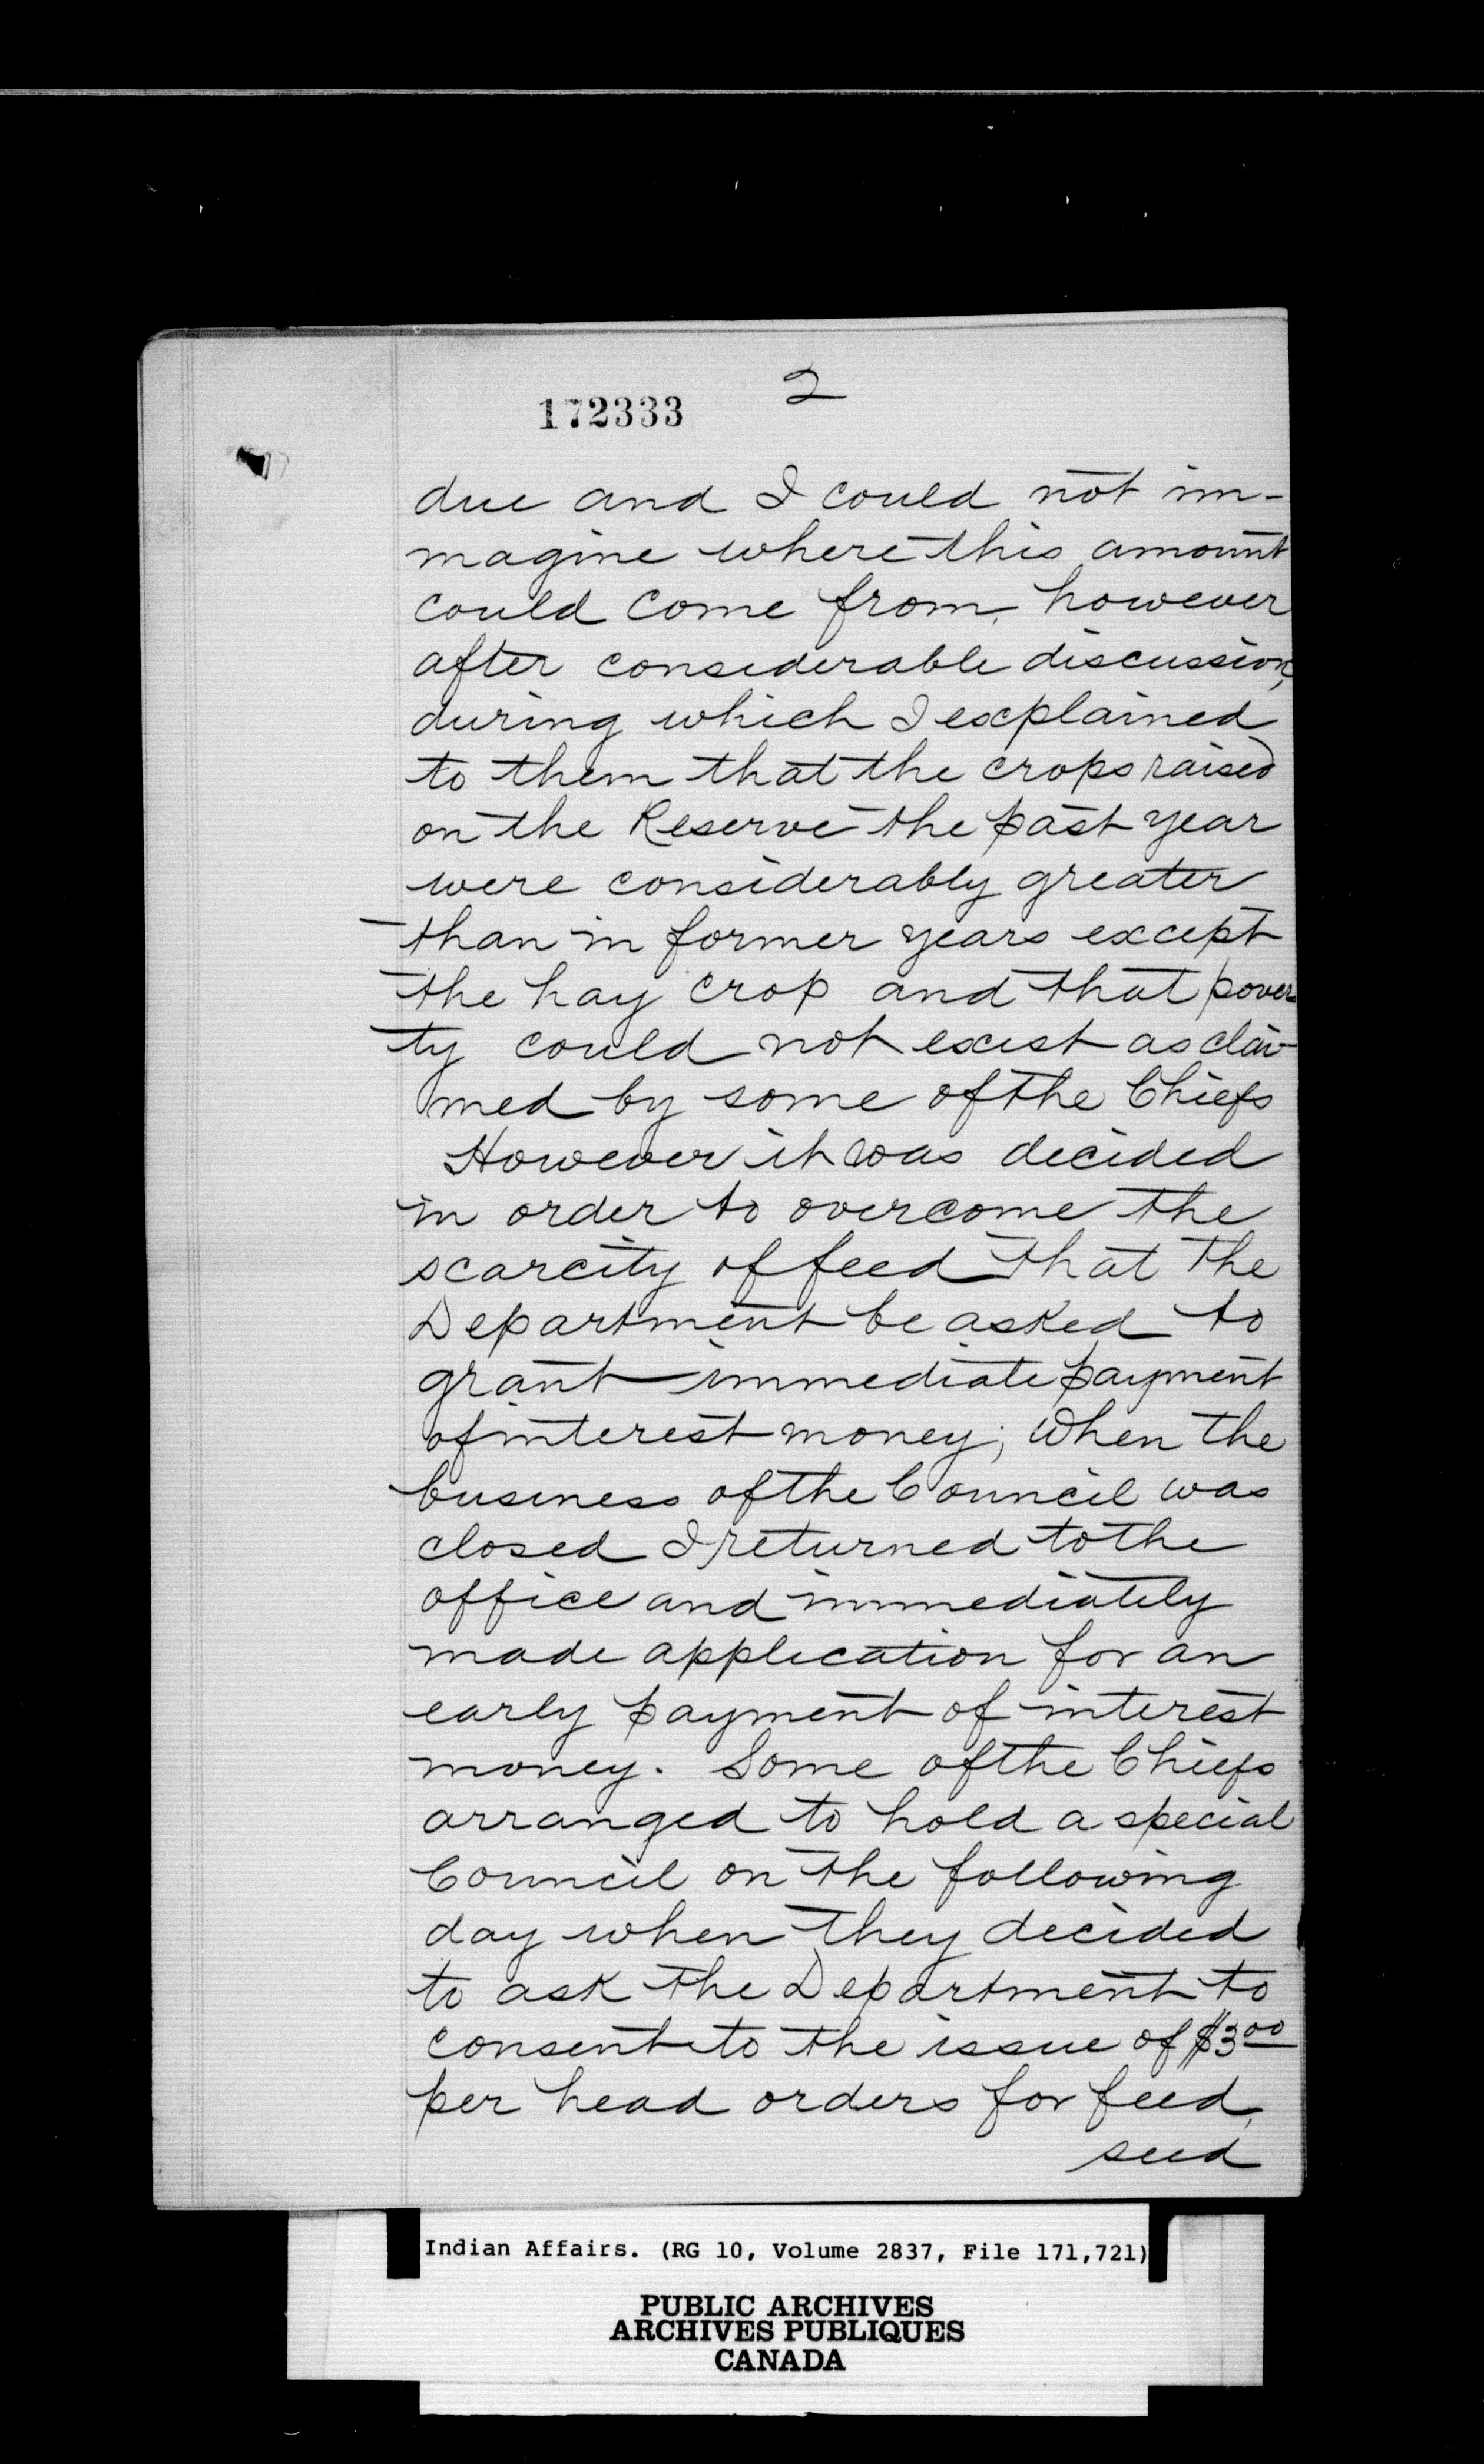 2
172333
due and I could not im-
magine where this amount
could come from, however
after considerable discussion,
during which I explained
to them that the crops raised
on the Reserve the past year
were considerably greater
than in former years except
the hay crop and that pover
ty could not exist as clai-
med by some of the Chiefs
However it was decided
in order to overcome the
scarcity of feed that the
Department be asked to
grant immediate payment
of interest money; When the
business of the Council was
closed I returned to the
office and immediately
made application for an
early payment of interest
money. Some of the Chiefs
arranged to hold a special
Council on the following
day when they decided
to ask the Department to
consent to the issue of $3.00
per head orders for feed,
seed
Indian Affairs. (RG 10, Volume 2837, File 171,721)
PUBLIC ARCHIVES
ARCHIVES PUBLIQUES
CANADA